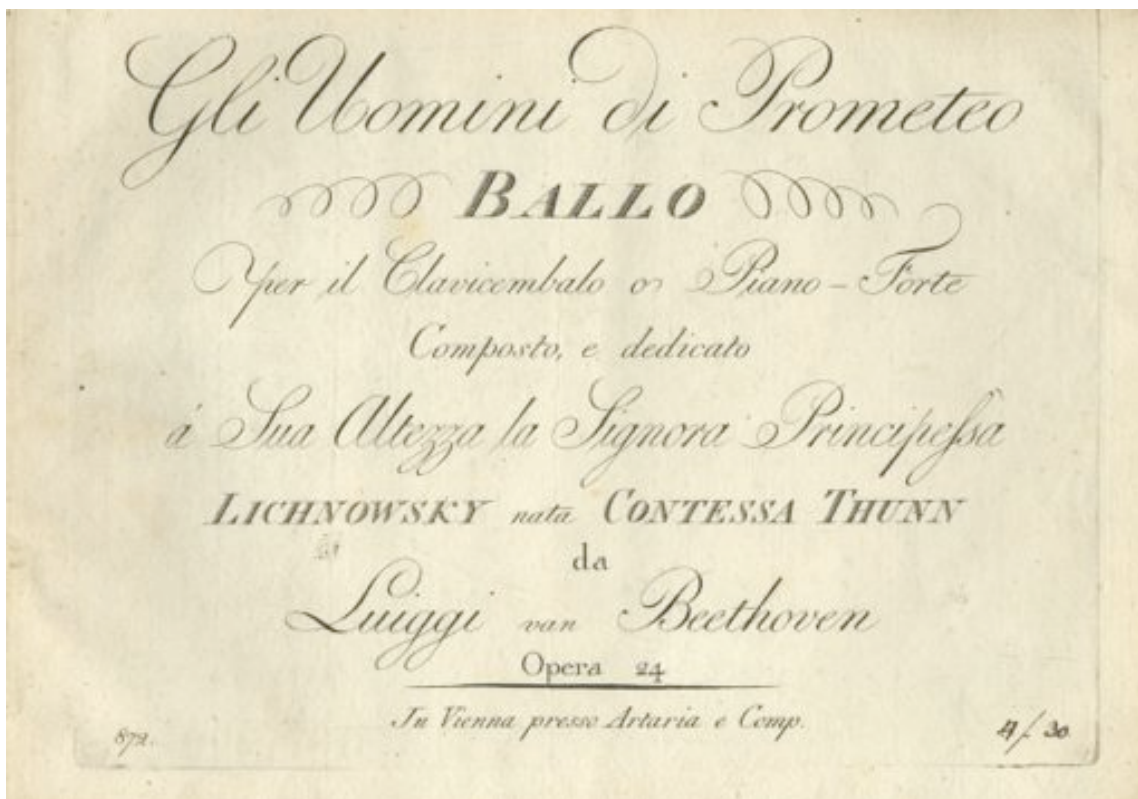 Gli Uomini di Prometeo
BALLO
per il Clavicembalo o Piano-Forte
Composto, e dedicato
á Sua Altezza la Signora Principeſsa
LICHNOWSKY nata CONTESSA THUNN
da
Luiggi van Beethoven
Opera 24
In Vienna presso Artaria e Comp.
872. f. 30